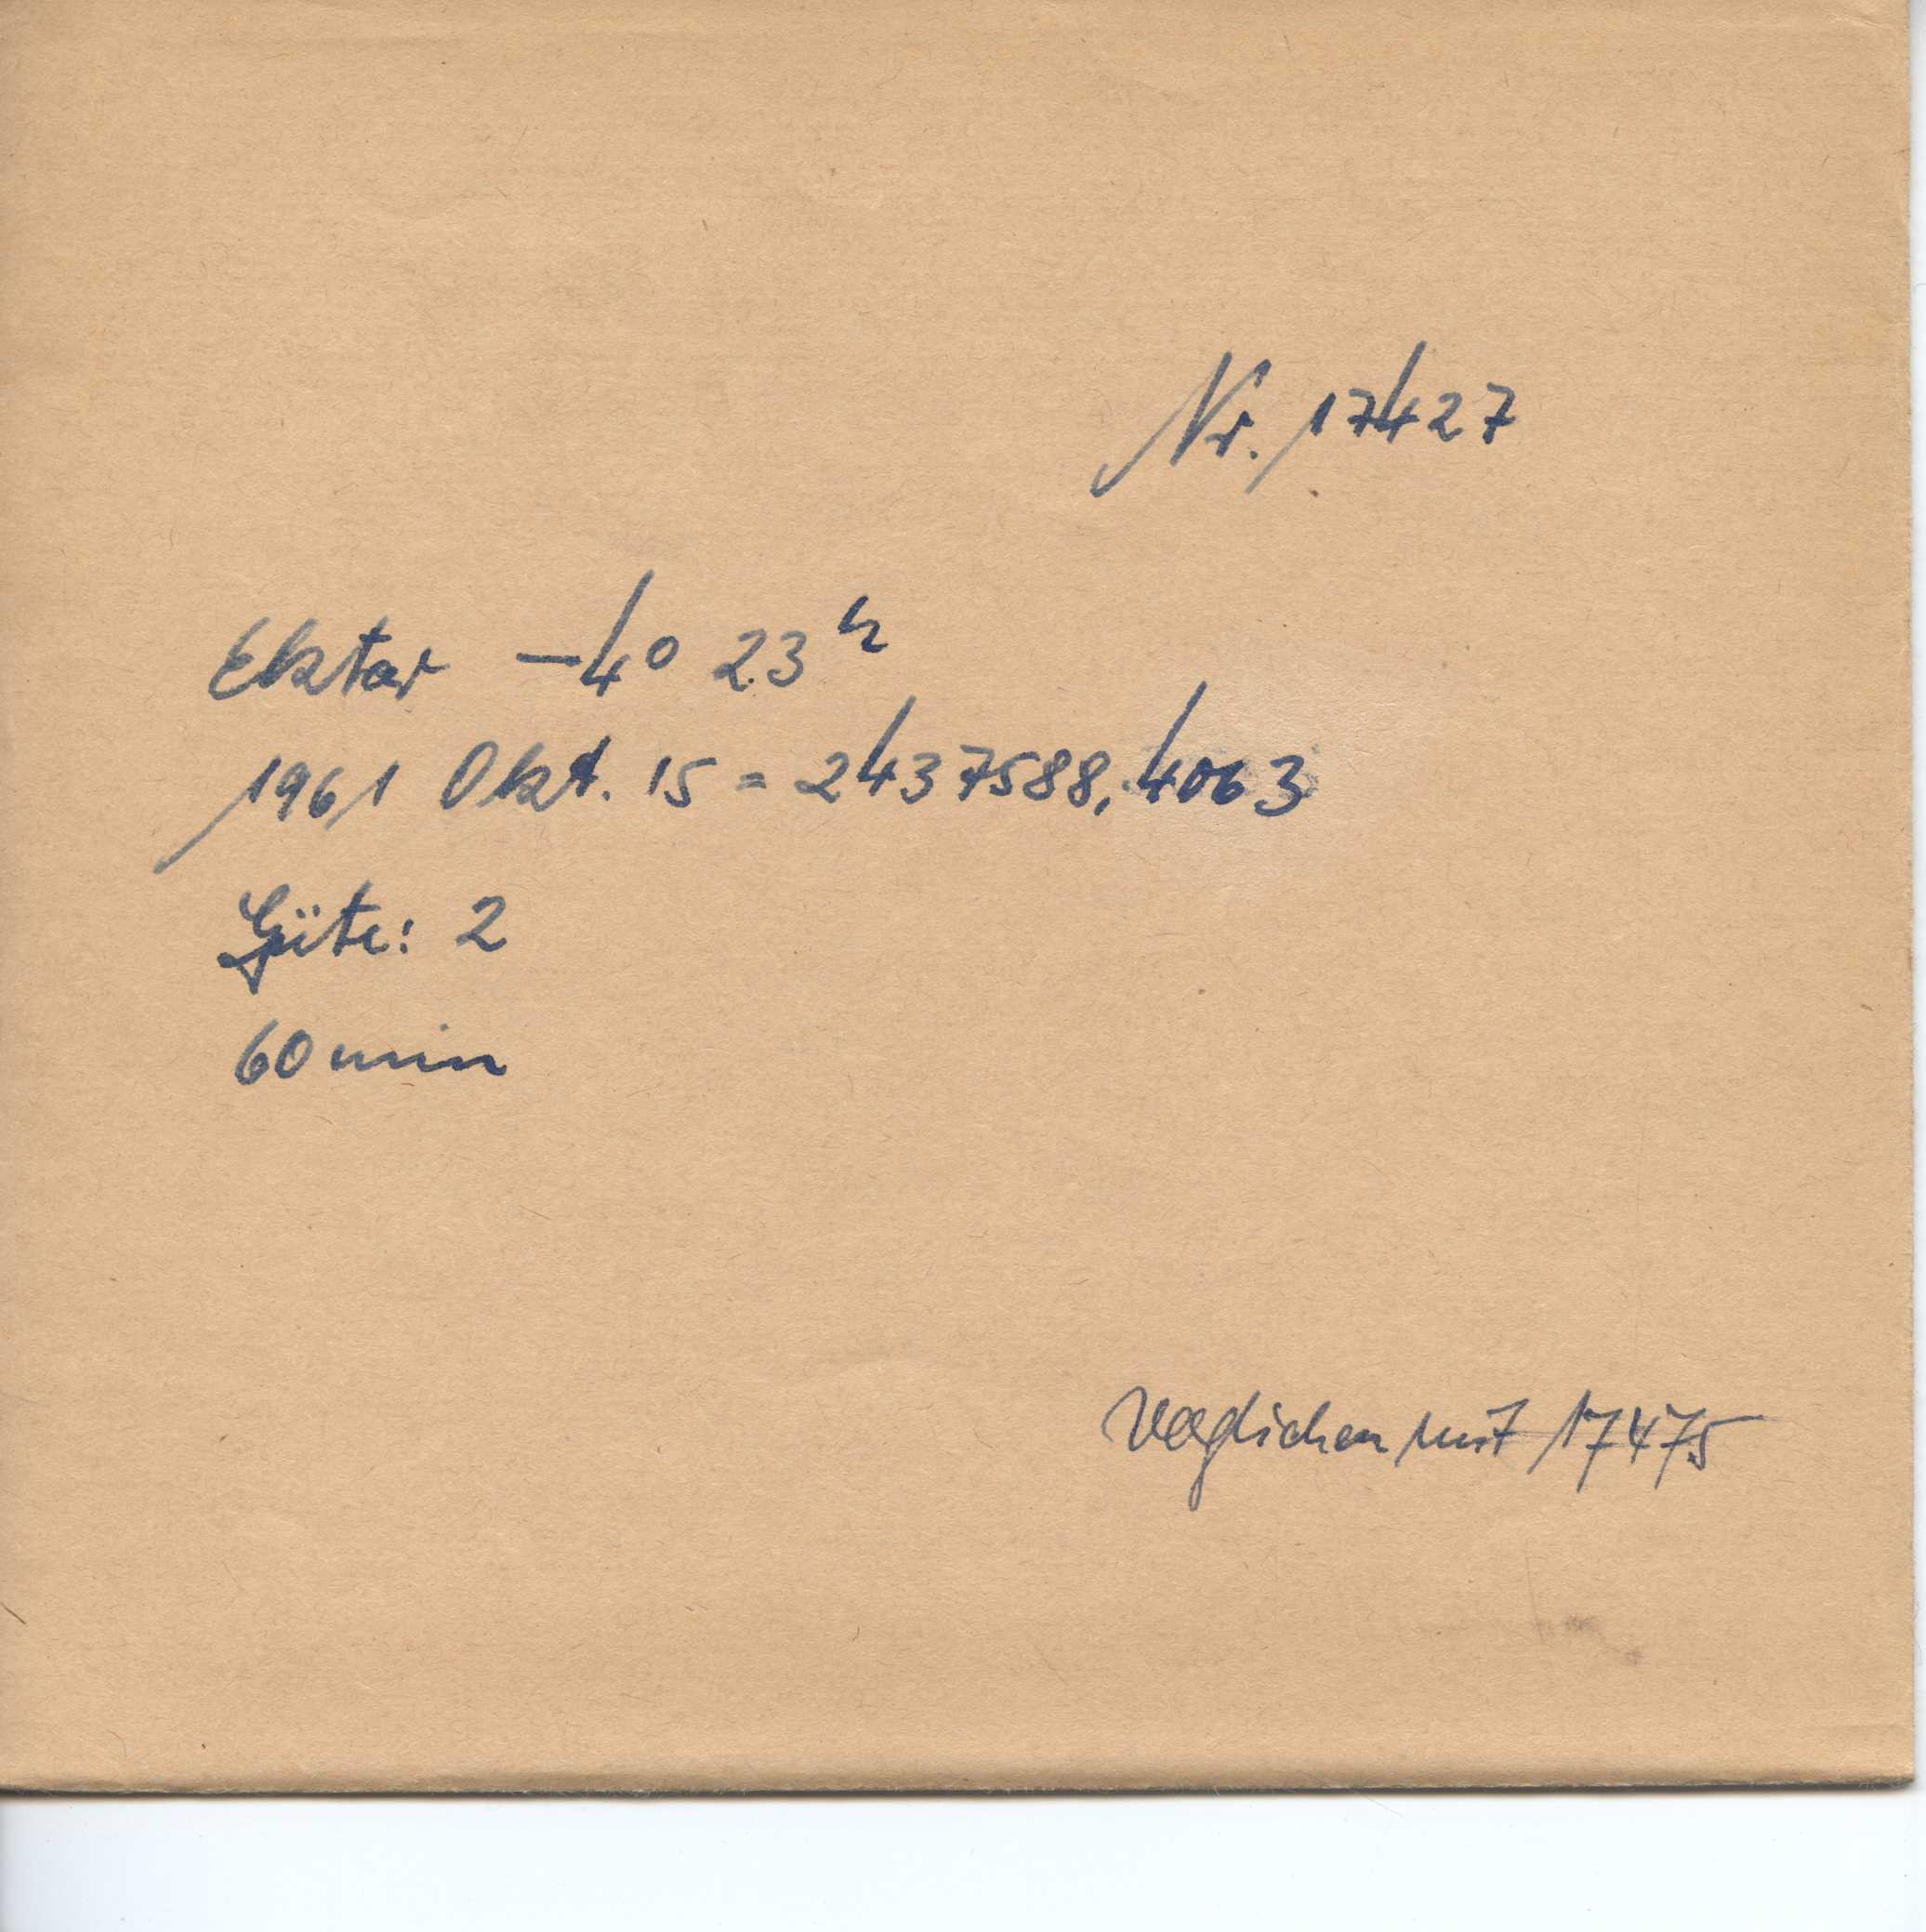 Nr. 17427
Ektar −4° 23ʰ
1961 Okt. 15 = 2437588,4063
Güte: 2
60 min
Verglichen mit 17475